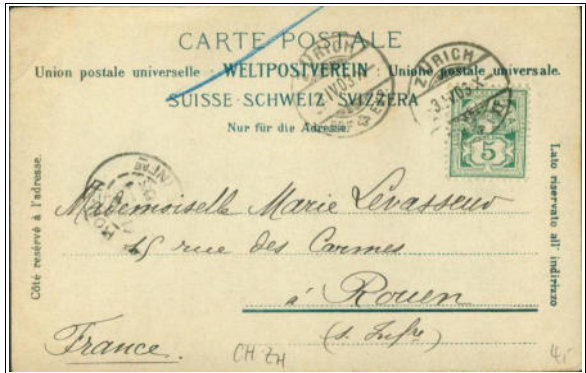 CARTE POSTALE
Union postale universelle · WELTPOSTVEREIN · Unione postale universale.
SUISSE · SCHWEIZ · SVIZZERA
Nur für die Adresse.
ZÜRICH
ZÜRICH
5
Côté resérvé à l'adresse.
Lato riservato all' indirizzo
ROUEN
Mademoiselle Marie Levasseur
rue des Carmes
à Rouen
(S. Infre)
France.
CH ZH